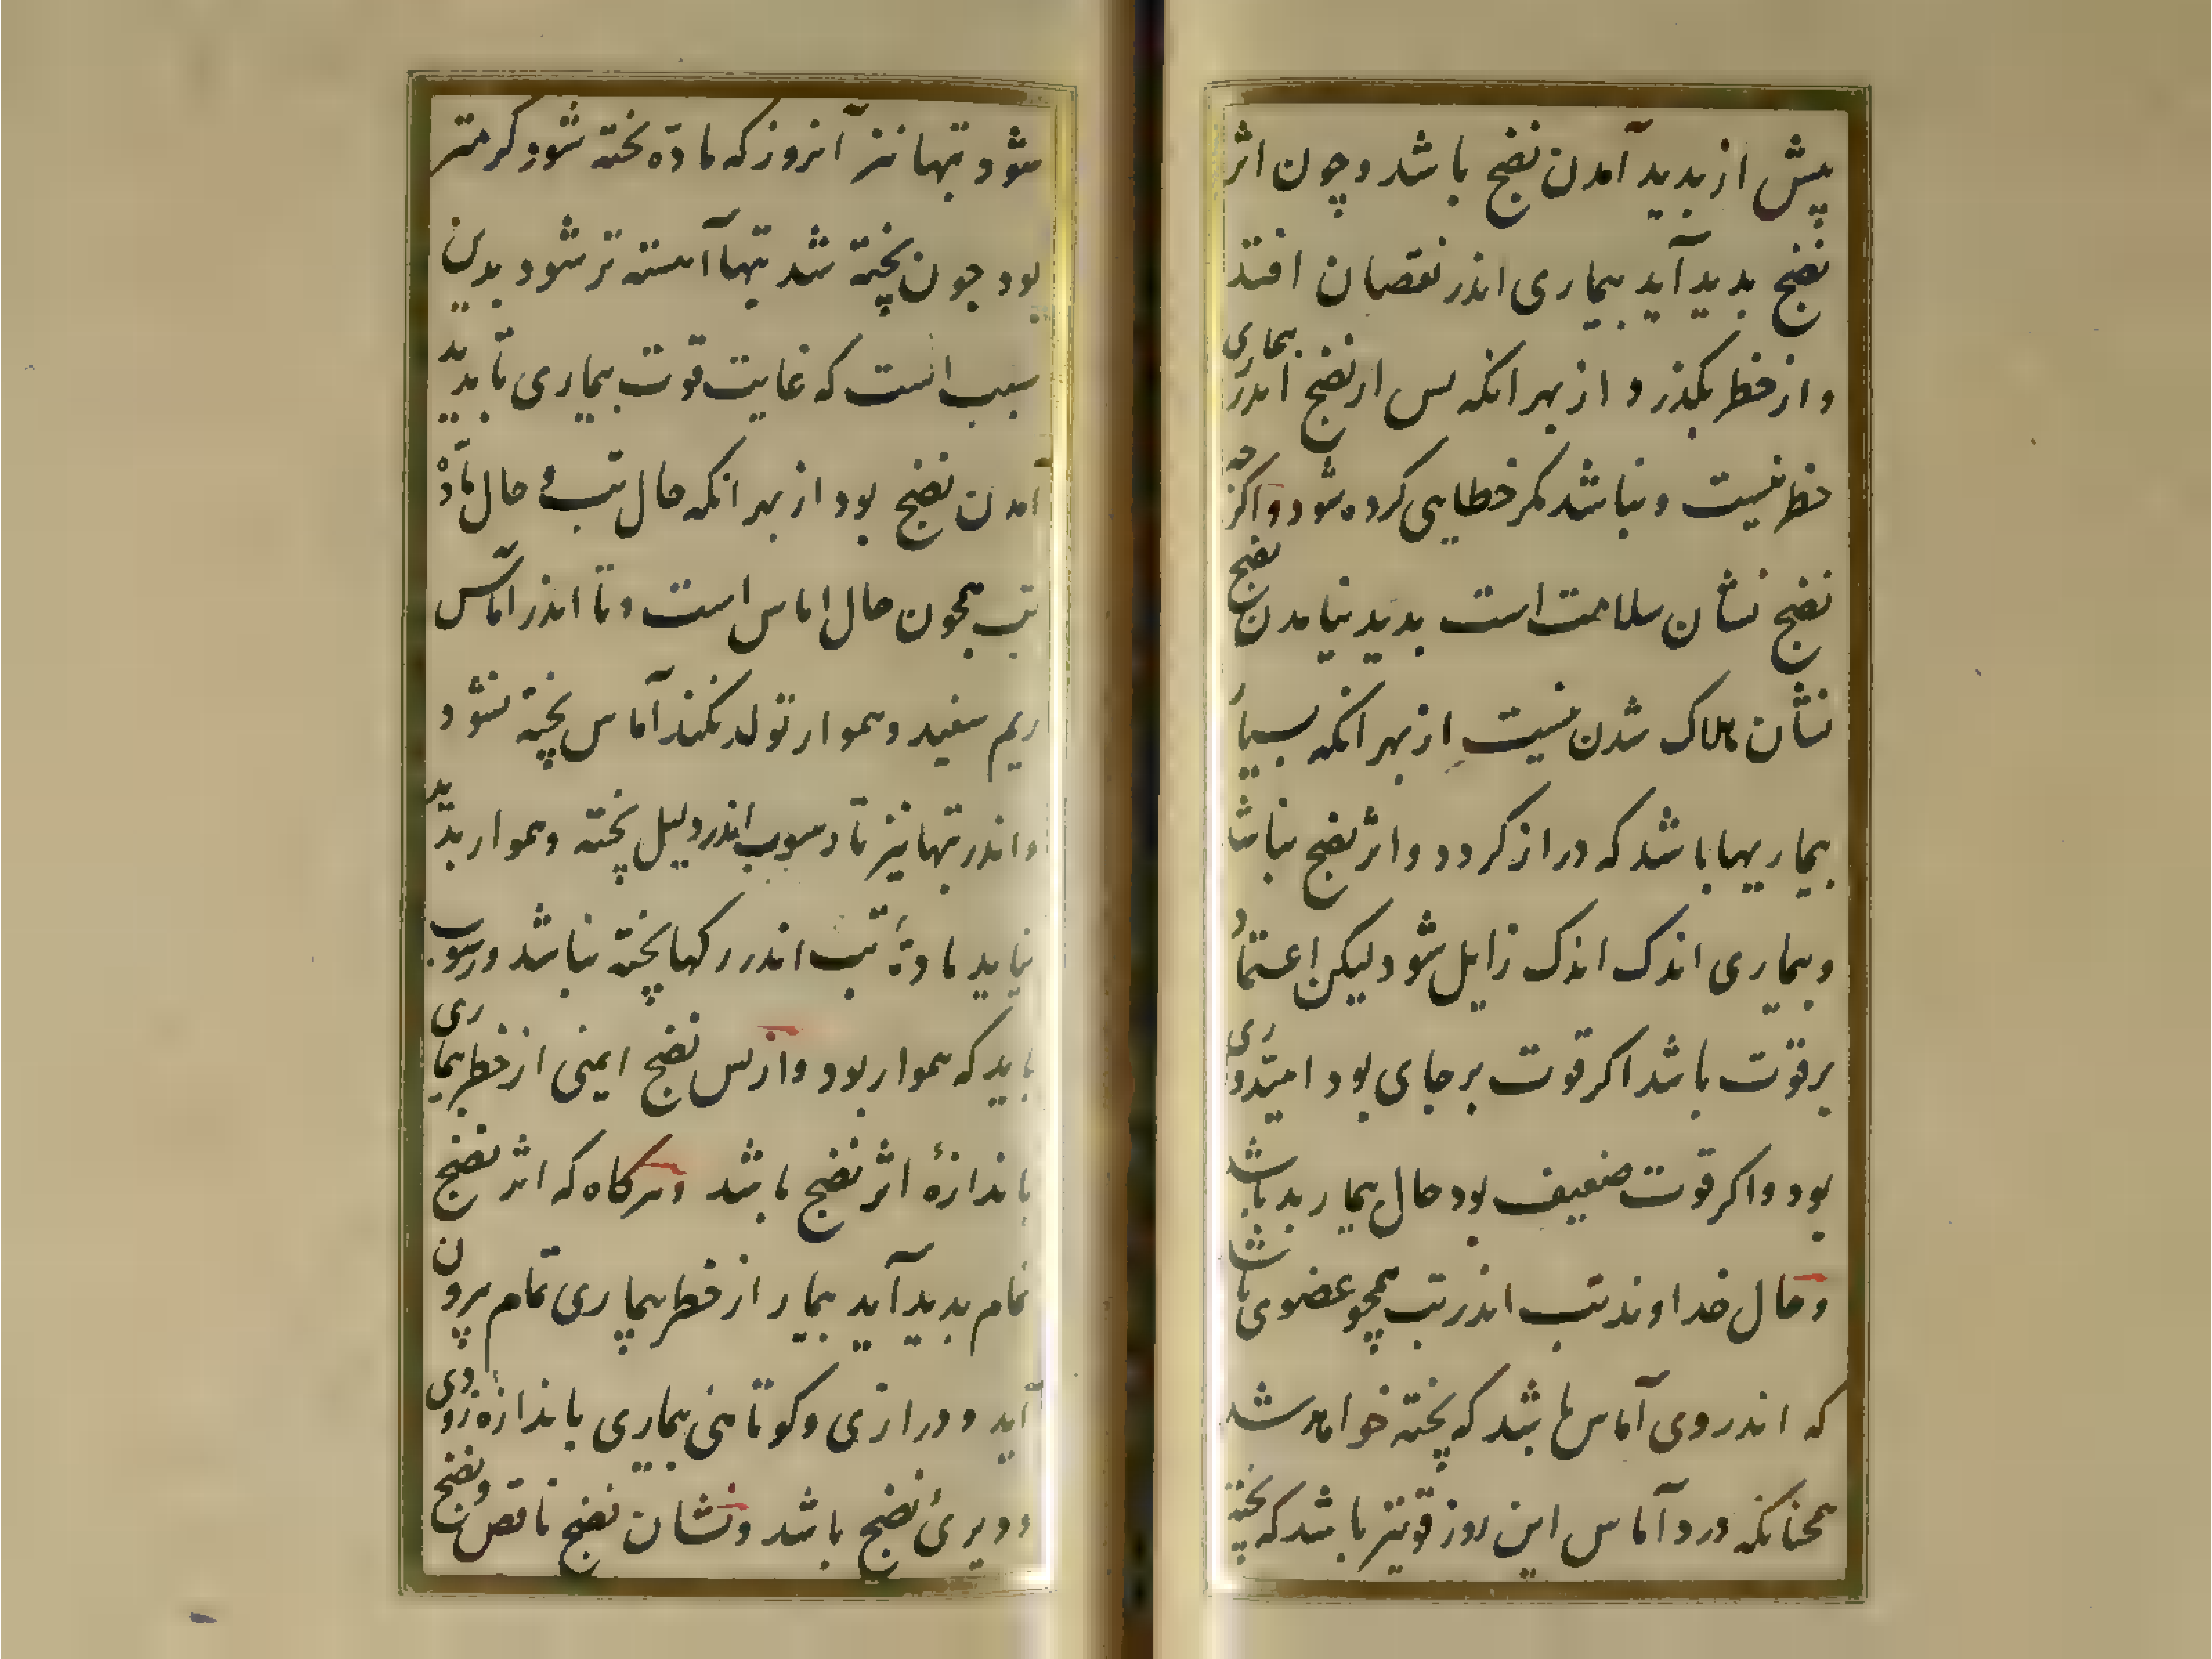 پیش از بدید آمدن نضج باشد و چون اثر
نضج بدید آید بیماری اندر نقصان افتد
و از خطر بگذرد از بهر انکه بس از نضج اندر بیماری
خطر نیست و نباشد مکر خطایی کرده شود و اگر چه
نضج نشان سلامت است بدید نیامدن نضج
نشان هلاک شدن نیست از بهر انکه بسیار
بیماریها باشد که دراز کردد و اثر نضج نباشد
و بیماری اندک اندک زایل شود لیکن اعتماد
بر قوّت باشد اکر قوت بر جای بود امیدواری
بود و اکر قوت ضعیف بود حال بیمار بد باشد
و حال خداوند تب اندر تب همچو عضوی باشد
که اندر وی آماس باشد که پخته خواهد شد
همچنانکه درد آماس این روز قویتر باشد که پخته
شود تبها نیز آنروز که مادّه پخته شود کرمتر
بود چون پخته شد تبها آهسته تر شود بدین
سبب است که غایت قوت بیماری تا بدید
آمدن نضج بود از بهر انکه حال تب و حال مادّه
تب همچون حال اماس است و تا اندر اماس
ریم سفید و هموار تولد نکند آماس پخته نشود
و اندر تبها نیز تا رسوب اندر دلیل پخته و هموار بدید
نیاید مادهٔ تب اندر رکها پخته نباشد و رسوب
باید که هموار بود و از بس نضج ایمنی از خطر بیماری
باندازهٔ اثر نضج باشد و هرکاه که اثر نضج
تمام بدید آید بیمار از خطر بیماری تمام بیرون
آید و درازی و کوتاهی بیماری باندازه زودی
و دیری نضج باشد و نشان نضج ناقص و نضج